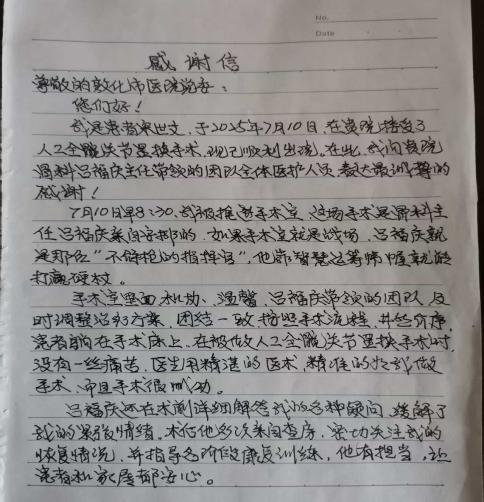 No.
Date
感谢信
尊敬的敦化市医院党委：
您们好！
我是患者宋世文，于2025年7月10日，在贵院接受了
人工全髋关节置换手术，现已顺利出院。在此，我向贵院
骨科吕福庆主任带领的团队全体医护人员表达最诚挚的
感谢！
7月10日早8:30，我被推进手术室，这场手术是骨科主
任吕福庆亲自安排的，如果手术室就是战场，吕福庆就
是那位“不停枪的指挥官”，他靠智慧运筹帷幄就能
打赢硬仗。
手术室里面机动、温馨，吕福庆带领的团队，及
时调整治疗方案，团结一致按照手术流程，井然有序，
患者躺在手术床上，在被做人工全髋关节置换手术时，
没有一丝痛苦，医生用精湛的医术，精准的给我做
手术，而且手术很成功。
吕福庆还在术前详细解答我的各种疑问，缓解了
我的紧张情绪。术后他多次亲自查房，密切关注我的
恢复情况，并指导各阶段康复训练，他有担当，让
患者和家属都安心。